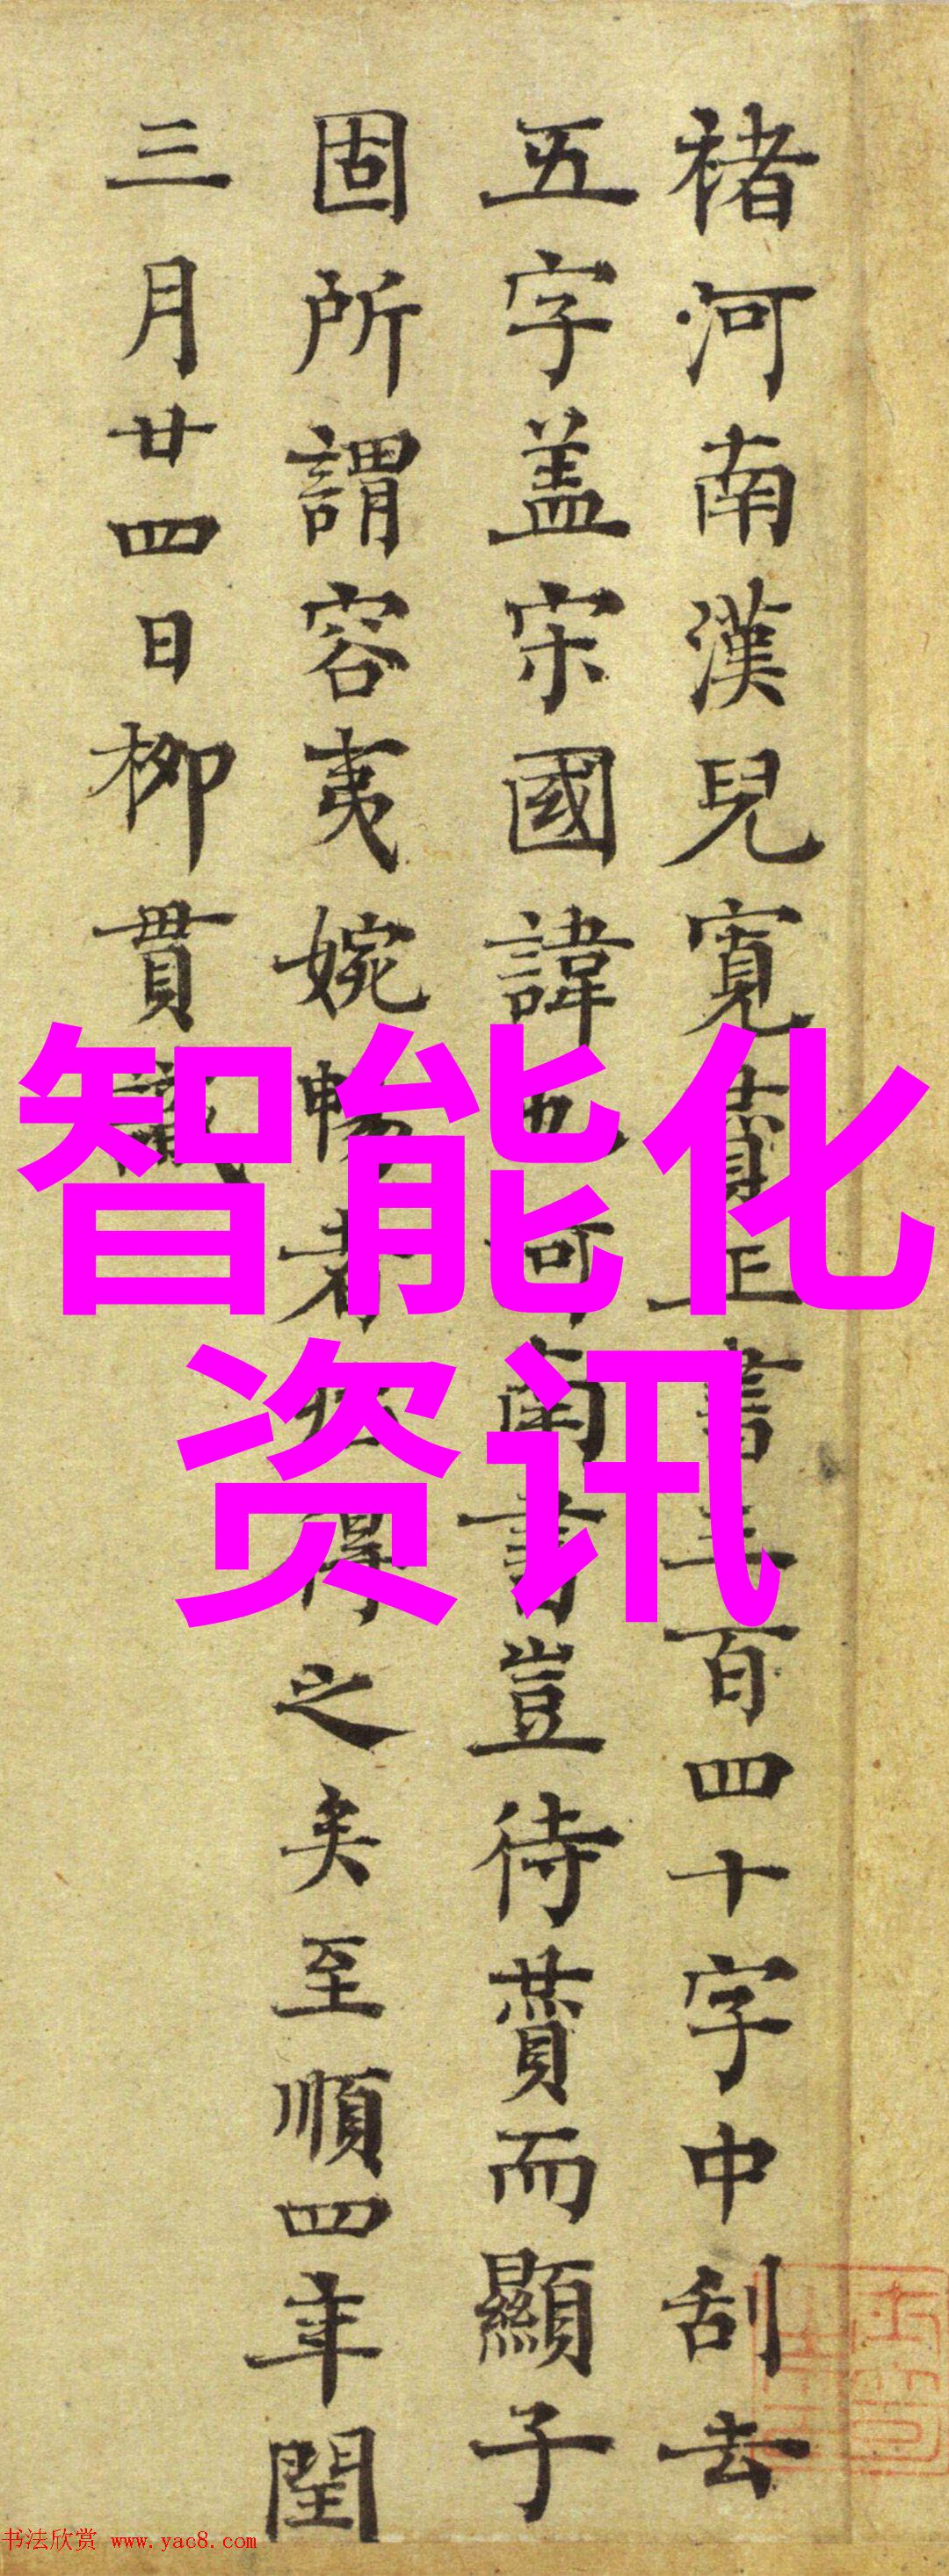 褚河南漢兒寬贊正書三百四十字中刮去
五字盖宋國諱也河南書豈待贊而顯子
固所謂容夷婉暢者得之矣至順四年閏
三月廿四日柳貫識
智能化
资讯
书法欣赏 www.yac8.com